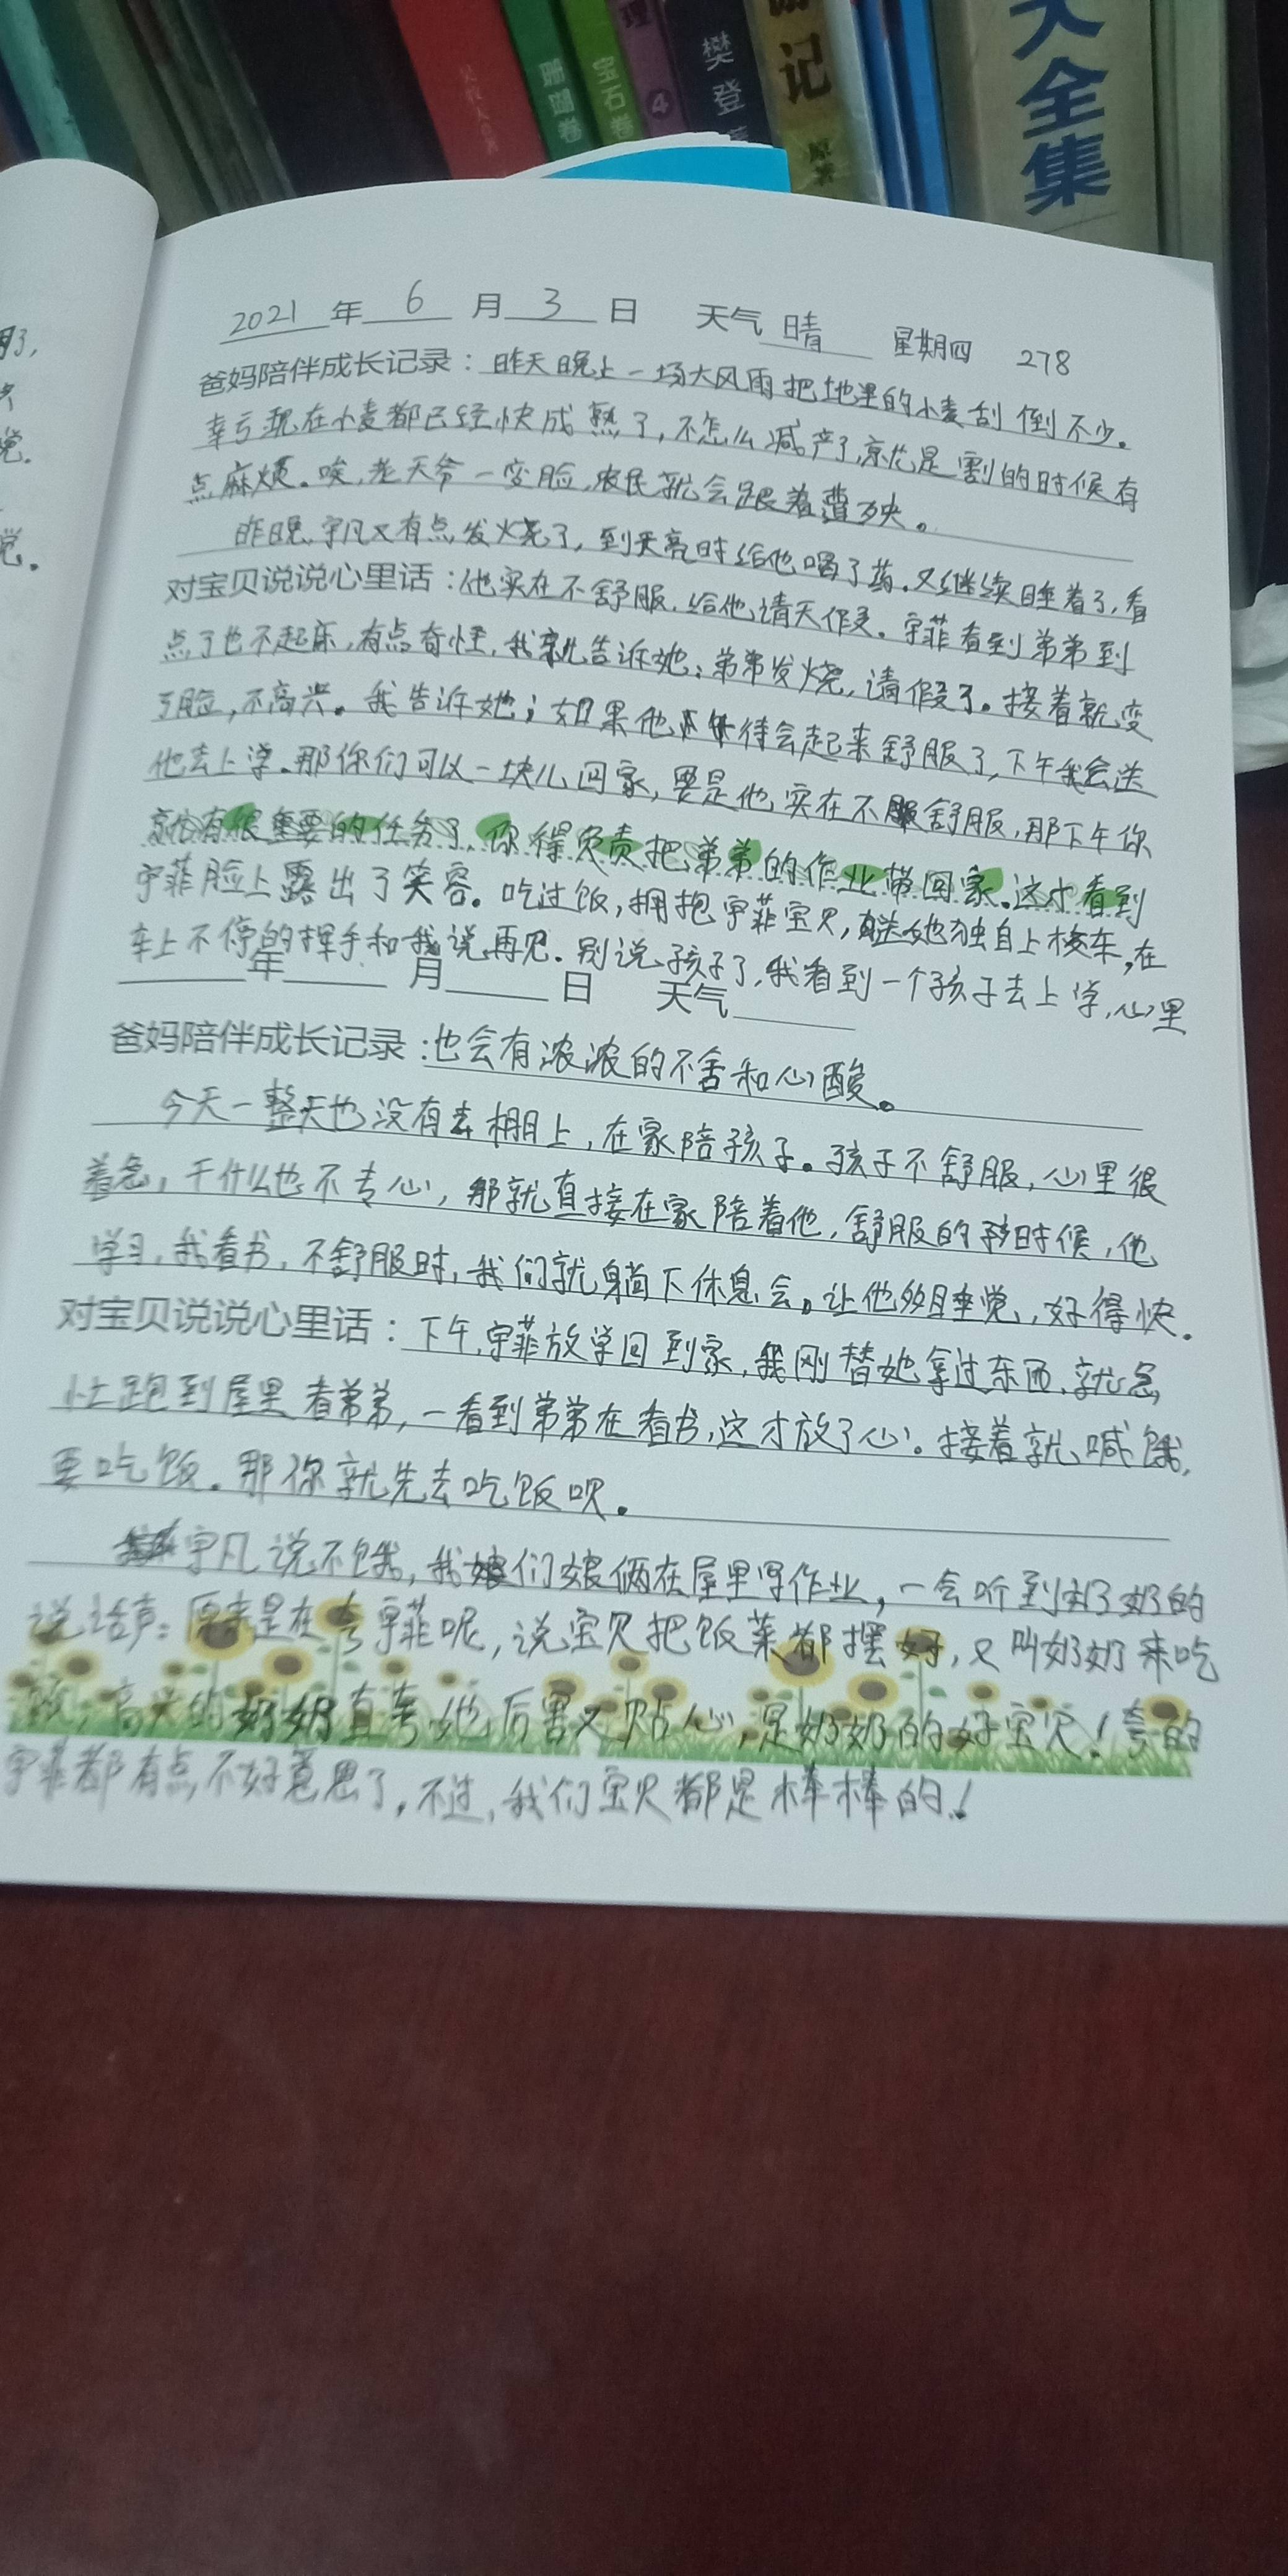 大全集
记
原著
樊登
理
4
宝石卷
珊瑚卷
2021年 6 月 3 日 天气 晴 星期四 278
爸妈陪伴成长记录：昨天晚上一场大风雨把地里的小麦刮倒不少。
幸亏现在小麦都已经快成熟了，不怎么减产了，就是割的时候有
点麻烦。唉，老天爷一变脸，农民就会跟着遭殃。
昨晚，宇凡又有点发烧了，到天亮时给他喝了药。又继续睡着了，看
对宝贝说说心里话：他实在不舒服，给他请天作业。宇菲看到弟弟到
点了也不起床，有点奇怪，我就告诉她：弟弟发烧，请假了。接着就变
了脸，不高兴。我告诉她；如果他待会起来舒服了，下午我会送
他去上学。那你们可以一块儿回家，要是他实在不舒服，那下午你
就有很重要的任务了，你得负责把弟弟的作业带回家。这才看到
宇菲脸上露出了笑容。吃过饭，拥抱宇菲宝贝，送她独自上校车，在
车上不停的挥手和我说再见。别说孩子了，我看到一个孩子去上学，心里
年 月 日 天气
爸妈陪伴成长记录：也会有浓浓的不舍和心酸。
今天一整天也没有去棚上，在家陪孩子。孩子不舒服，心里很
着急，干什么也不专心，那就直接在家陪着他，舒服的时候，他
学习，我看书，不舒服时，我们就躺下休息会。让他多睡觉，好得快。
对宝贝说说心里话：下午，宇菲放学回到家，我刚替她拿过东西，就急
忙跑到屋里看弟弟，一看到弟弟在看书，这才放了心。接着就喊饿，
要吃饭。那你就先去吃饭呗。
宇凡说不饿，我们娘俩在屋里写作业，一会听到奶奶的
说话声：原来是在夸宇菲呢，说宝贝把饭菜都摆好，又叫奶奶来吃
饭，高兴的奶奶直夸她厉害又贴心，是奶奶的好宝贝！夸的
宇菲都有点不好意思了，不过，我们宝贝都是棒棒的！